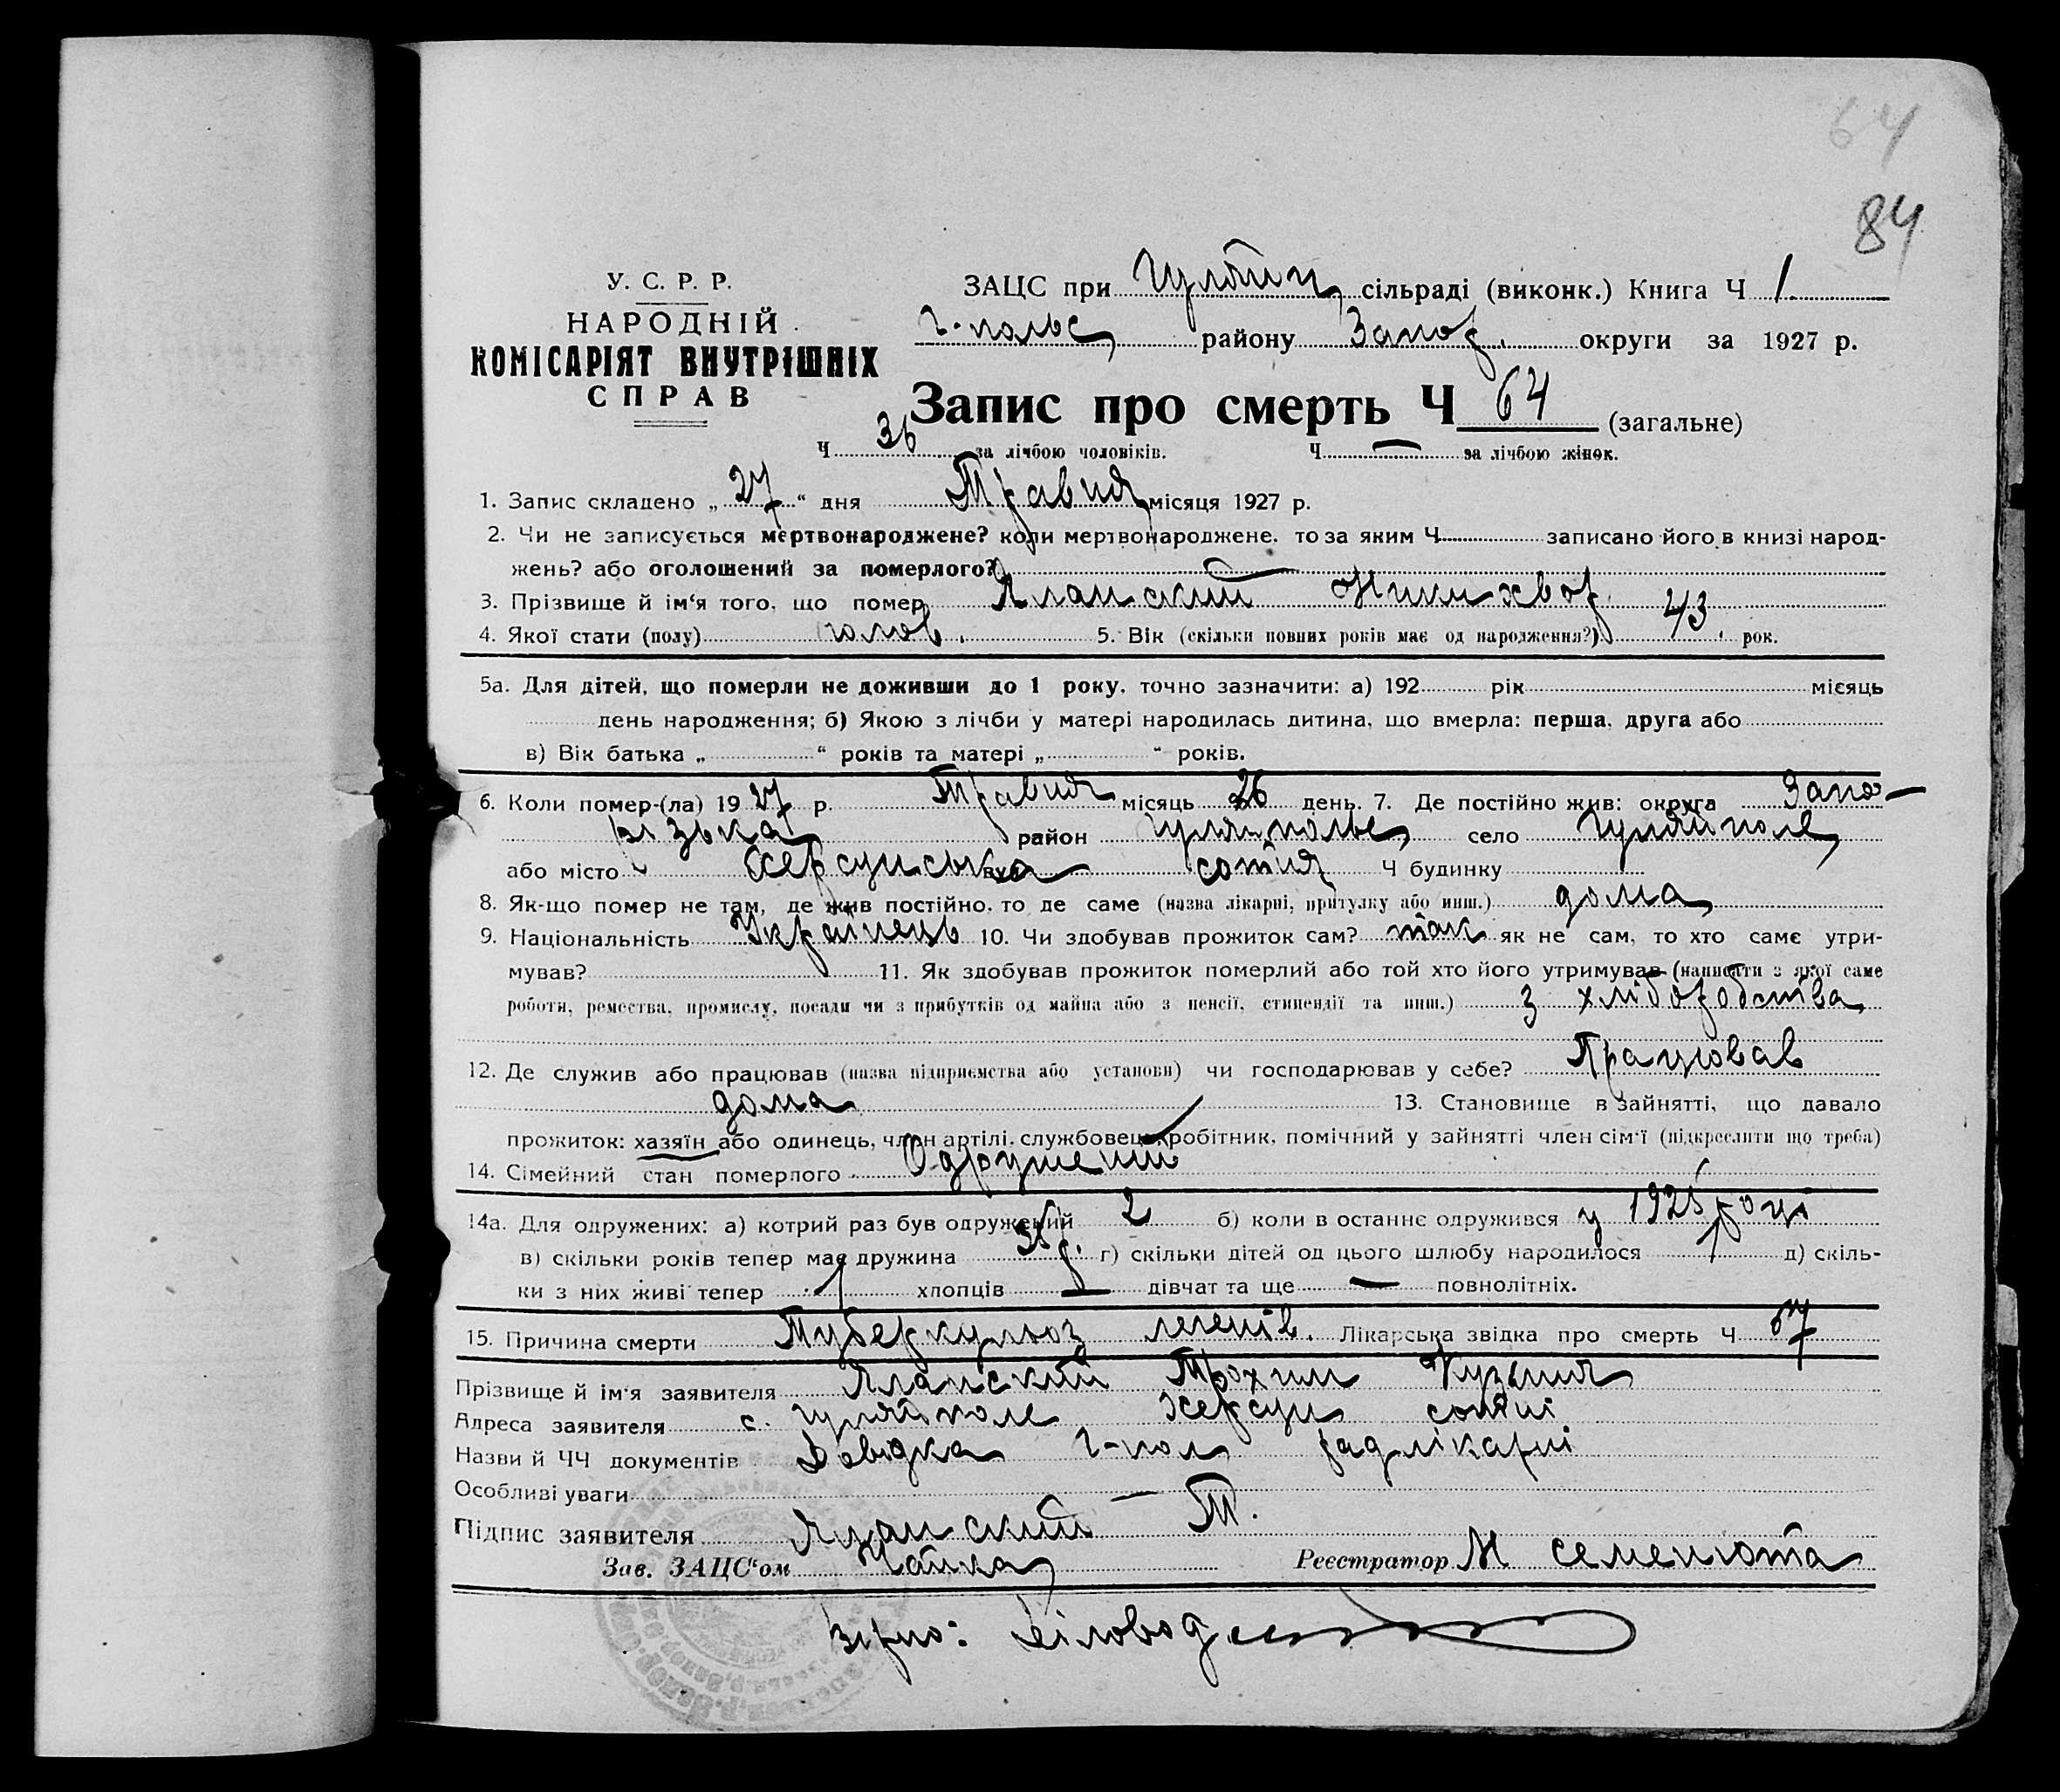 64
84
У. С. Р. Р.
НАРОДНІЙ
КОМІСАРІЯТ ВНУТРІШНІХ
СПРАВ
ЗАЦС при сільраді (виконк.) Книга Ч 1.
Г-польс району Запор. округи за 1927 р.
Запис про смерть Ч 64 (загальне)
Ч 36 за лічбою чоловіків. Ч — за лічбою жінок.
1. Запис складено „ 27 “ дня Травня місяця 1927 р.
2. Чи не записується мертвонароджене? коли мертвонароджене, то за яким Ч записано його в книзі народ-
жень? або оголошений за померлого? —
3. Прізвище й ім‘я того, що помер Яланский Никихвор
4. Якої стати (полу) чолов. 5. Вік (скільки повних років має од народження?) 43. рок.
5а. Для дітей, що померли не доживши до 1 року, точно зазначити: а) 192 рік місяць
день народження; б) Якою з лічби у матері народилась дитина, що вмерла: перша, друга або
в) Вік батька „ “ років та матері „ “ років.
6. Коли помер-(ла) 19 27 р. Травня місяць 26 день. 7. Де постійно жив: округа Запо-
різька район Гуляйпольс село Гуляйполе
або місто Херсунська вул. сотня Ч будинку
8. Як-що помер не там, де жив постійно, то де саме (назва лікарні, притулку або инш.) дома
9. Національність Українець 10. Чи здобував прожиток сам? так як не сам, то хто саме утри-
мував? 11. Як здобував прожиток померлий або той хто його утримував (написати з якої саме
роботи, ремества, промислу, посади чи з прибутків од майна або з пенсії, стипендії та инш.) з хліборобства
12. Де служив або працював (назва підприємства або установи) чи господарював у себе? Працював
дома 13. Становище в зайнятті, що давало
прожиток: хазяїн або одинець, член артілі, службовець, робітник, помічний у зайнятті член сім‘ї (підкреслити що треба)
14. Сімейний стан померлого Одружений
14а. Для одружених: а) котрий раз був одружений 2 б) коли в останнє одружився у 1925 році
в) скільки років тепер має дружина 35 р. г) скільки дітей од цього шлюбу народилося 1 д) скіль-
ки з них живі тепер 1 хлопців — дівчат та ще — повнолітніх.
15. Причина смерти Туберкульоз легенів. Лікарська звідка про смерть Ч 67
Прізвище й ім‘я заявителя Яланский Трохим Кузьмич
Адреса заявителя с. Гуляйполе Херсун сотні
Назви й ЧЧ документів Довідка Г-пол радлікарні
Особливі уваги —
Підпис заявителя Яланский Т.
Зав. ЗАЦС‘ом Чайка Реєстратор М Семенюта
Вірно: Діловод